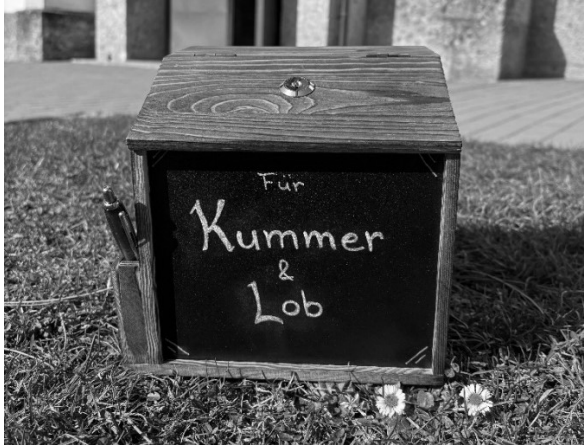 Für
Kummer
&
Lob